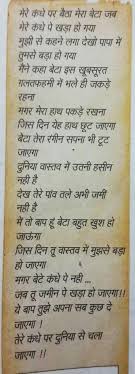 मेरे कंधे पर बैठा मेरा बेटा जब
मेरे कंधे पे खड़ा हो गया
मुझी से कहने लगा देखो पापा में
तुमसे बड़ा हो गया
मैंने कहा बेटा इस खूबसूरत
ग़लतफहमी में भले ही जकड़े
रहना
मगर मेरा हाथ पकड़े रखना
जिस दिन येह हाथ छूट जाएगा
बेटा तेरा रंगीन सपना भी टूट
जाएगा
दुनिया वास्तव में उतनी हसीन
नही है
देख तेरे पांव तले अभी जमीं
नही है
में तो बाप हूं बेटा बहुत खुश हो
जाऊंगा
जिस दिन तू वास्तव में मुझसे बड़ा
हो जाएगा
मगर बेटे कंधे पे नही ...
जब तू जमीन पे खड़ा हो जाएगा!!
ये बाप तुझे अपना सब कुछ दे
जाएगा !
तेरे कंधे पर दुनिया से चला
जाएगा !!